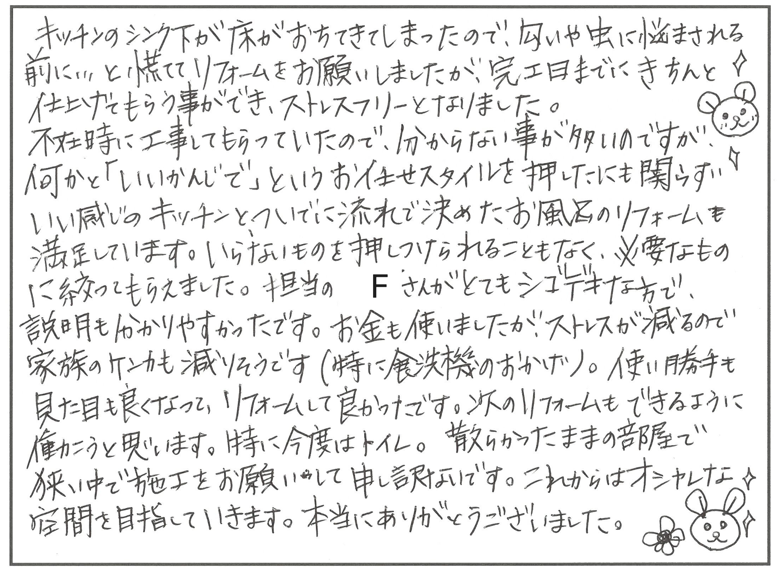 キッチンのシンク下が床がおちてきてしまったので、匂いや虫に悩まされる
前に…と慌ててリフォームをお願いしましたが、完工日までにきちんと
仕上げてもらう事ができ、ストレスフリーとなりました。
不在時に工事してもらっていたので、分からない事が多いのですが、
何かと「いいかんじで」というお任せスタイルを押したにも関らず
いい感じのキッチンと、ついでに流れで決めたお風呂のリフォームも
満足しています。いらないものを押しつけられることもなく、必要なもの
に絞ってもらえました。担当の F さんがとてもシゴデキな方で、
説明も分かりやすかったです。お金も使いましたが、ストレスが減るので
家族のケンカも減りそうです(特に食洗機のおかげ)。使い勝手も
見た目も良くなって、リフォームして良かったです。次のリフォームもできるように
働こうと思います。特に今度はトイレ。散らかったままの部屋で
狭い中で施工をお願いして申し訳ないです。これからはオシャレな
空間を目指していきます。本当にありがとうございました。